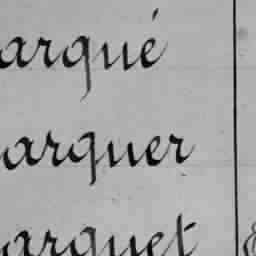 arqué
arquer
arquet